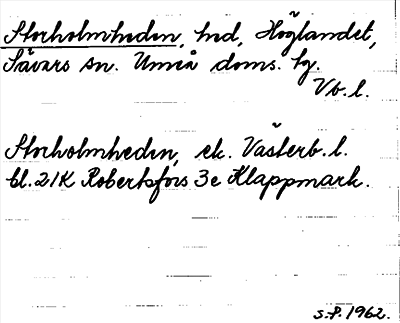 Storholmheden, hed, Höglandet,
Sävars sn. Umeå doms. tg.
Vb. l.
Storholmheden, ek. Västerb. l.
bl. 21K Robertsfors 3e Klappmark.
s.f. 1962.